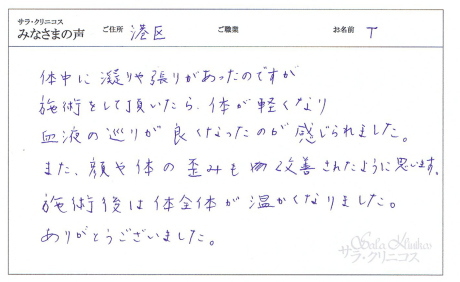 サラ・クリニコス
みなさまの声 ご住所 港区 ご職業 お名前 T
体中に凝りや張りがあったのですが
施術をして頂いたら、体が軽くなり
血液の巡りが良くなったのが感じられました。
また、顔や体の歪みも改善されたように思います。
施術後は体全体が温かくなりました。
ありがとうございました。
Sala Klinikos
サラ・クリニコス